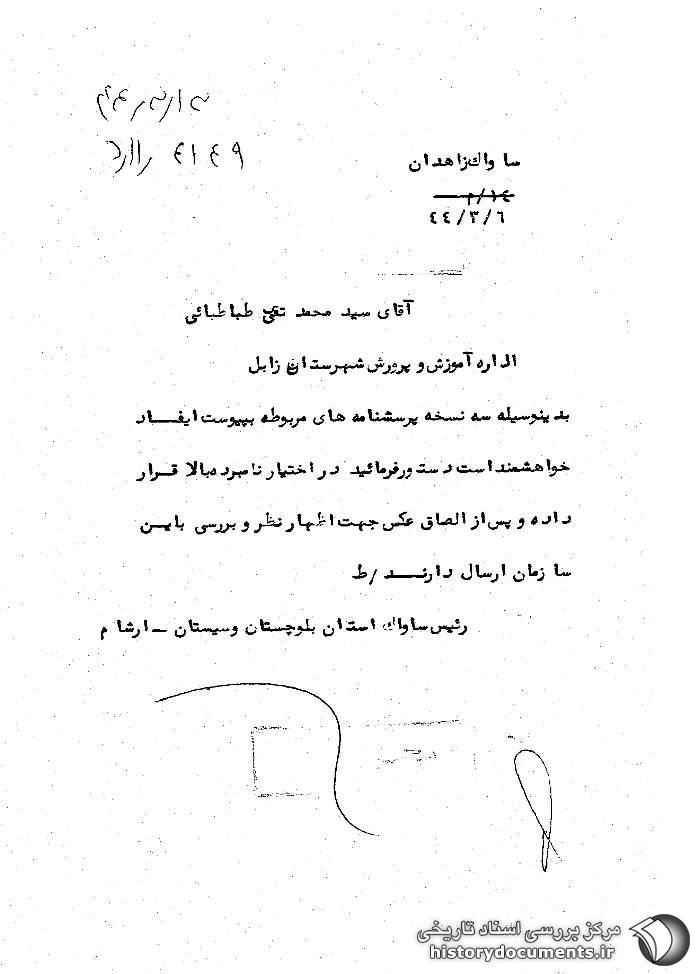 ۴۱۴۹
ساواك زاهدان
۱٤/م
٤٤/۳/٦
آقای سید محمد تقی طباطبائی
اداره آموزش و پرورش شهرستان زابل
بدینوسیله سه نسخه پرسشنامه های مربوطه بپیوست ایفــاد
خواهشمند است دستور فرمائید در اختیار نامبرده بالا قـرار
داده و پس از الصاق عکس جهت اظهار نظر و بررسی باین
سازمان ارسال دارنــد /ط
رئیس ساواك استان بلوچستان وسیستان – ارشام
مرکز بررسی اسناد تاریخی
historydocuments.ir